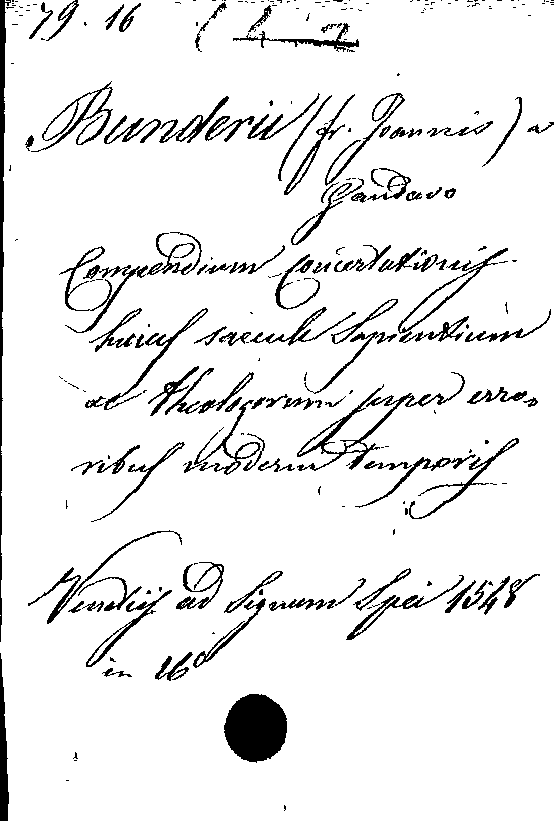 79. 16
Bunderii (fr. Joannis) a
Gandavo
Compendium Concertationis
huius saeculi Sapientium
ac Theologorum super erro-
ribus moderni temporis
Venetiis ad Signum Spei 1548
in 16°